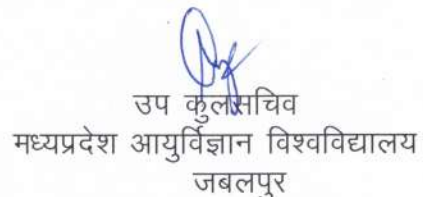 उप कुलसचिव
मध्यप्रदेश आयुर्विज्ञान विश्वविद्यालय
जबलपुर